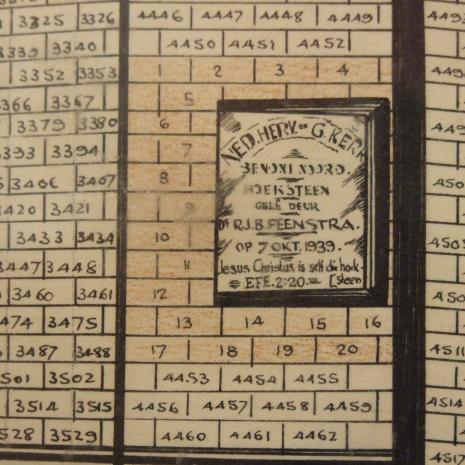 3325 3326 4446 4447 4448 4449
3339 3340 4450 4451 4452
3352 3353 1 2 3 4
3366 3367 5
3379 3380 6
3393 3394 7
3406 3407 8
3420 3421 9
3433 3434 10
3447 3448 11
3460 3461 12
NED. HERV. OF G. KERK
BENONI NOORD.
HOEKSTEEN
GELÊ DEUR
DS R.J.B. FEENSTRA.
OP 7 OKT. 1939.
Jesus Christus is self die hoek-
= EFE. 2:20. = [steen
3475 13 14 15 16
3487 3488 17 18 19 20
3502 4453 4454 4455
3514 3515 4456 4457 4458 4459
3529 4460 4461 4462